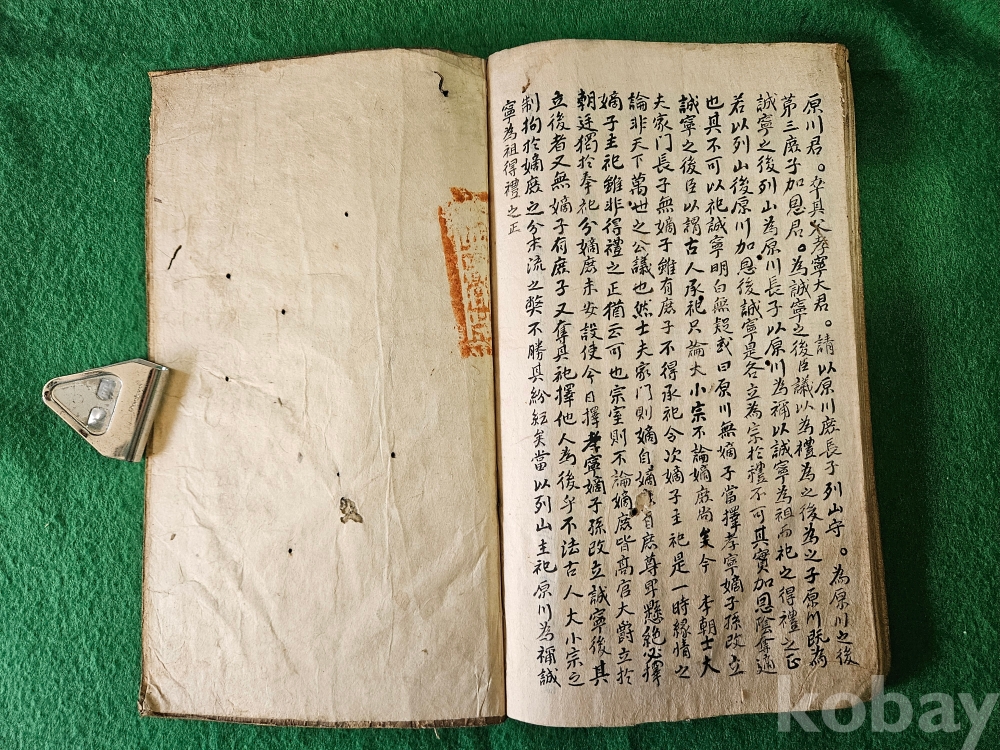 原川君。卒其父孝寧大君。請以原川庶長子列山守。為原川之後
第三庶子加恩君。為誠寧之後臣議以為禮為之後為之子原川既為
誠寧之後列山為原川長子以原川為禰以誠寧為祖而祀之得禮之正
若以列山後原川加恩後誠寧是各立為宗於禮不可其實加恩陰奪適
也其不可以祀誠寧明白無疑或曰原川無嫡子當擇孝寧嫡子孫改立
誠寧之後臣以謂古人承祀只論大小宗不論嫡庶尚矣今 李朝士大
夫家門長子無嫡子雖有庶子不得承祀令次嫡子主祀是一時緣情之
論非天下萬世之公議也然士夫家門則嫡自嫡庶自庶尊卑懸絶必擇
嫡子主祀雖非得禮之正猶云可也宗室則不論嫡庶皆高官大爵立於
朝廷獨於奉祀分嫡庶未安設使今日擇孝寧嫡子孫改立誠寧後其
立後者又無嫡子有庶子又奪其祀擇他人為後乎不法古人大小宗之
制拘於嫡庶之分末流之弊不勝其紛紜矣當以列山主祀原川為禰誠
寧為祖得禮之正
kobay